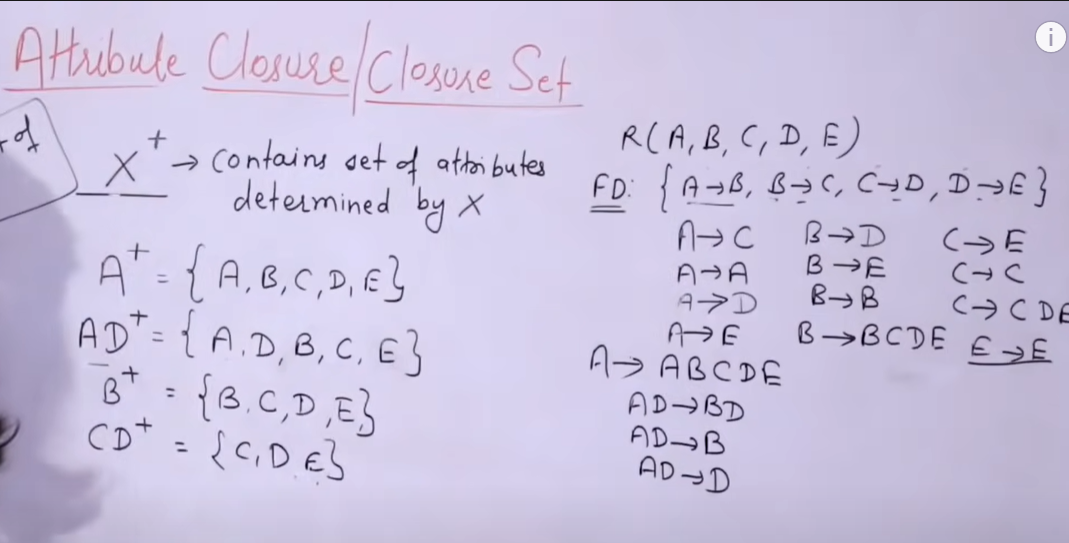 Attribute Closure/Closure Set
of
X⁺ → contains set of attributes
determined by X
A⁺ = {A, B, C, D, E}
AD⁺ = {A, D, B, C, E}
B⁺ = {B, C, D, E}
CD⁺ = {C, D E}
R(A, B, C, D, E)
FD: {A→B, B→C, C→D, D→E}
A→C B→D C→E
A→A B→E C→C
A→D B→B C→CDE
A→E B→BCDE E→E
A→ABCDE
AD→BD
AD→B
AD→D